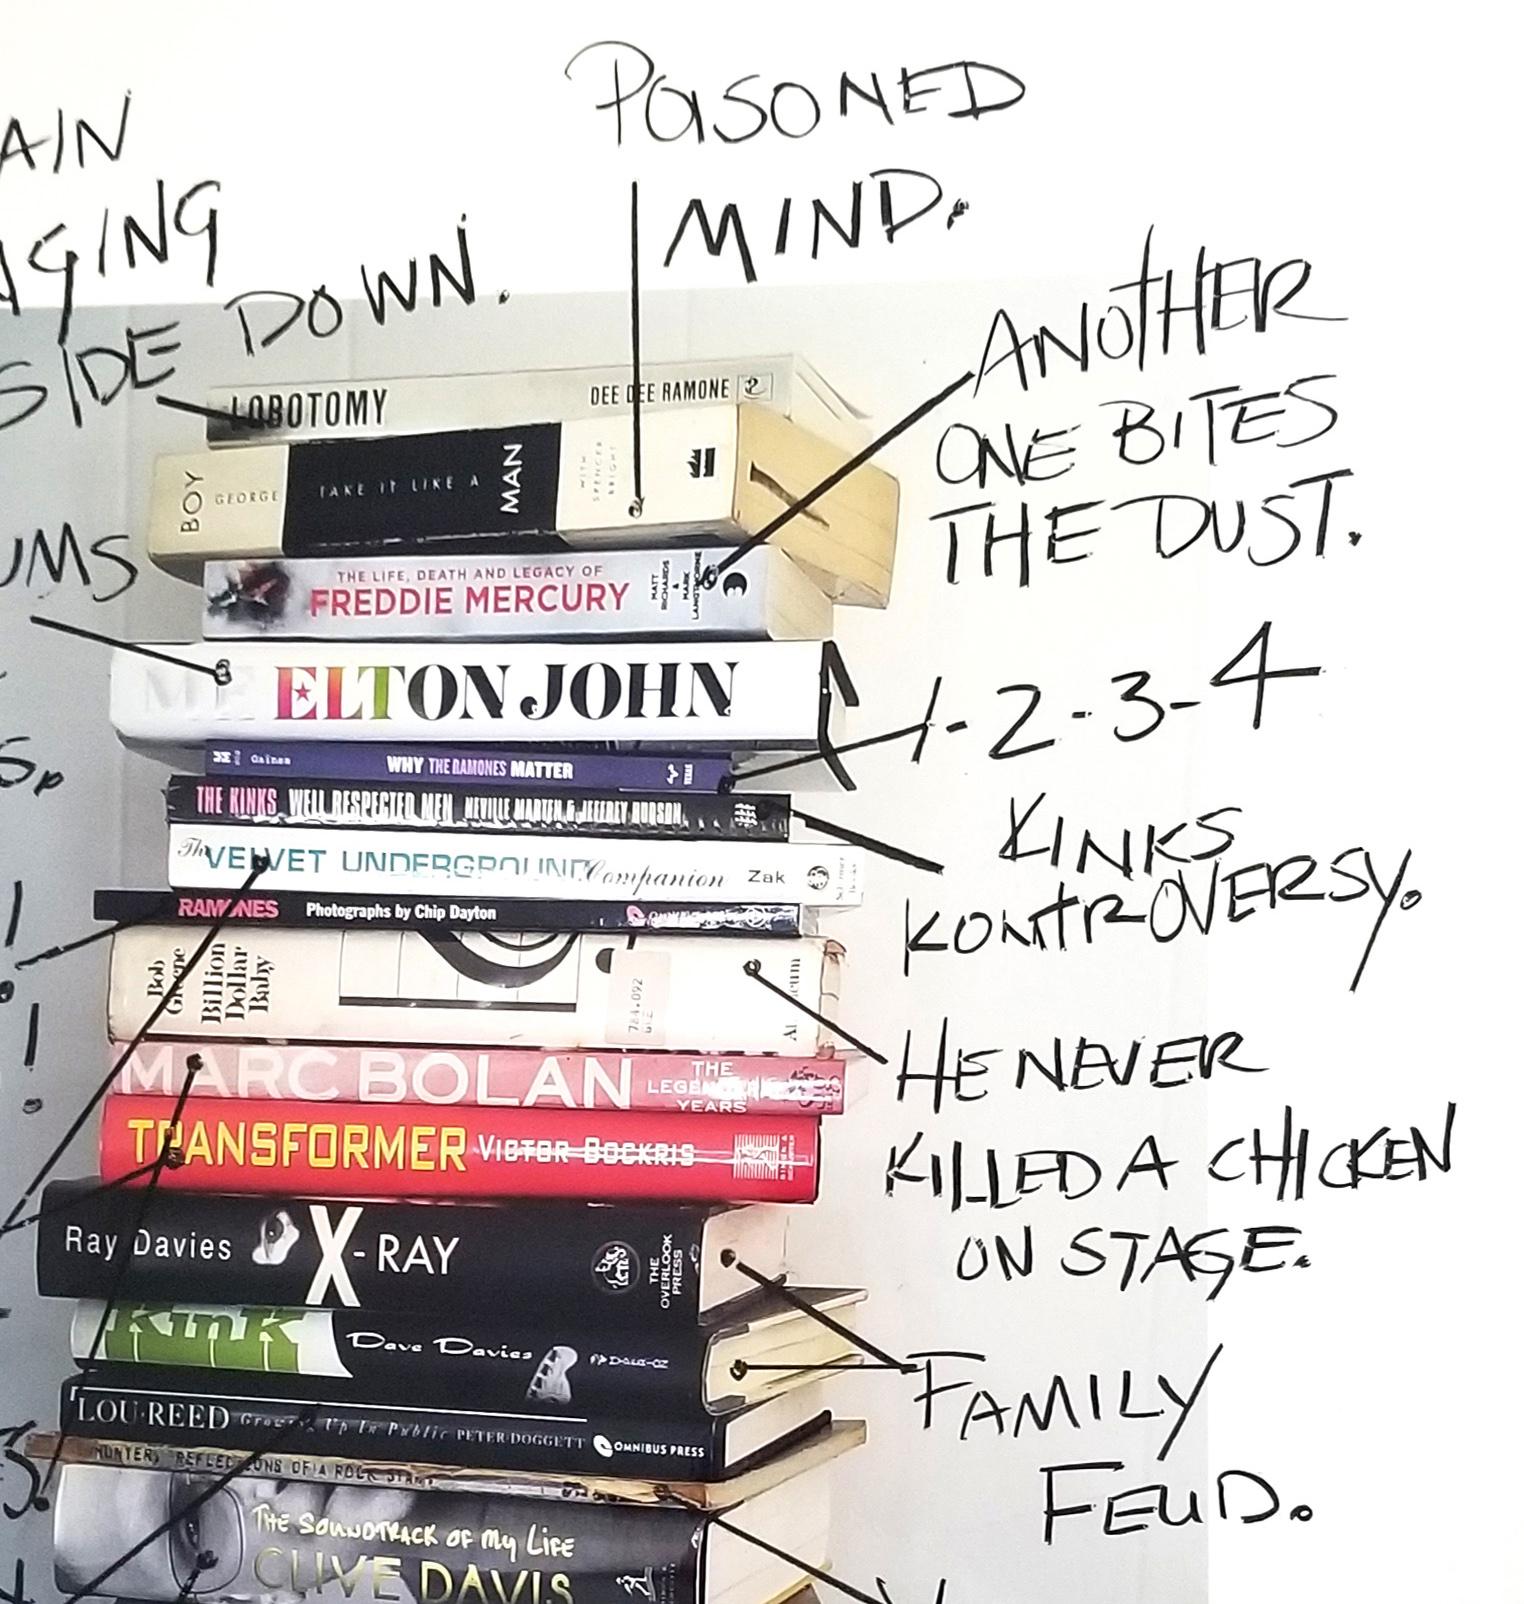 POISONED
MIND.
DOWN.
SIDE
ANOTHER
ONE BITES
THE DUST.
LOBOTOMY DEE DEE RAMONE
BOY GEORGE TAKE IT LIKE A MAN WITH SPENCER BRIGHT
THE LIFE, DEATH AND LEGACY OF
FREDDIE MERCURY MATT RICHARDS & MARK LANGTHORNE
ME ELTON JOHN
1-2-3-4
Gaines WHY THE RAMONES MATTER TEXAS
THE KINKS WELL RESPECTED MEN NEVILLE MARTEN & JEFFREY HUDSON
KINKS
KONTROVERSY.
The VELVET UNDERGROUND Companion Zak
RAMONES Photographs by Chip Dayton
Bob Greene Billion Dollar Baby 784.092
HE NEVER
KILLED A CHICKEN
ON STAGE.
MARC BOLAN THE LEGENDARY YEARS
TRANSFORMER VICTOR BOCKRIS
Ray Davies X-RAY THE OVERLOOK PRESS
KinK Dave Davies
FAMILY
FEUD.
LOU REED Growing Up In Public PETER DOGGETT OMNIBUS PRESS
REFLECTIONS OF A ROCK STAR
THE SOUNDTRACK OF MY LIFE
CLIVE DAVIS